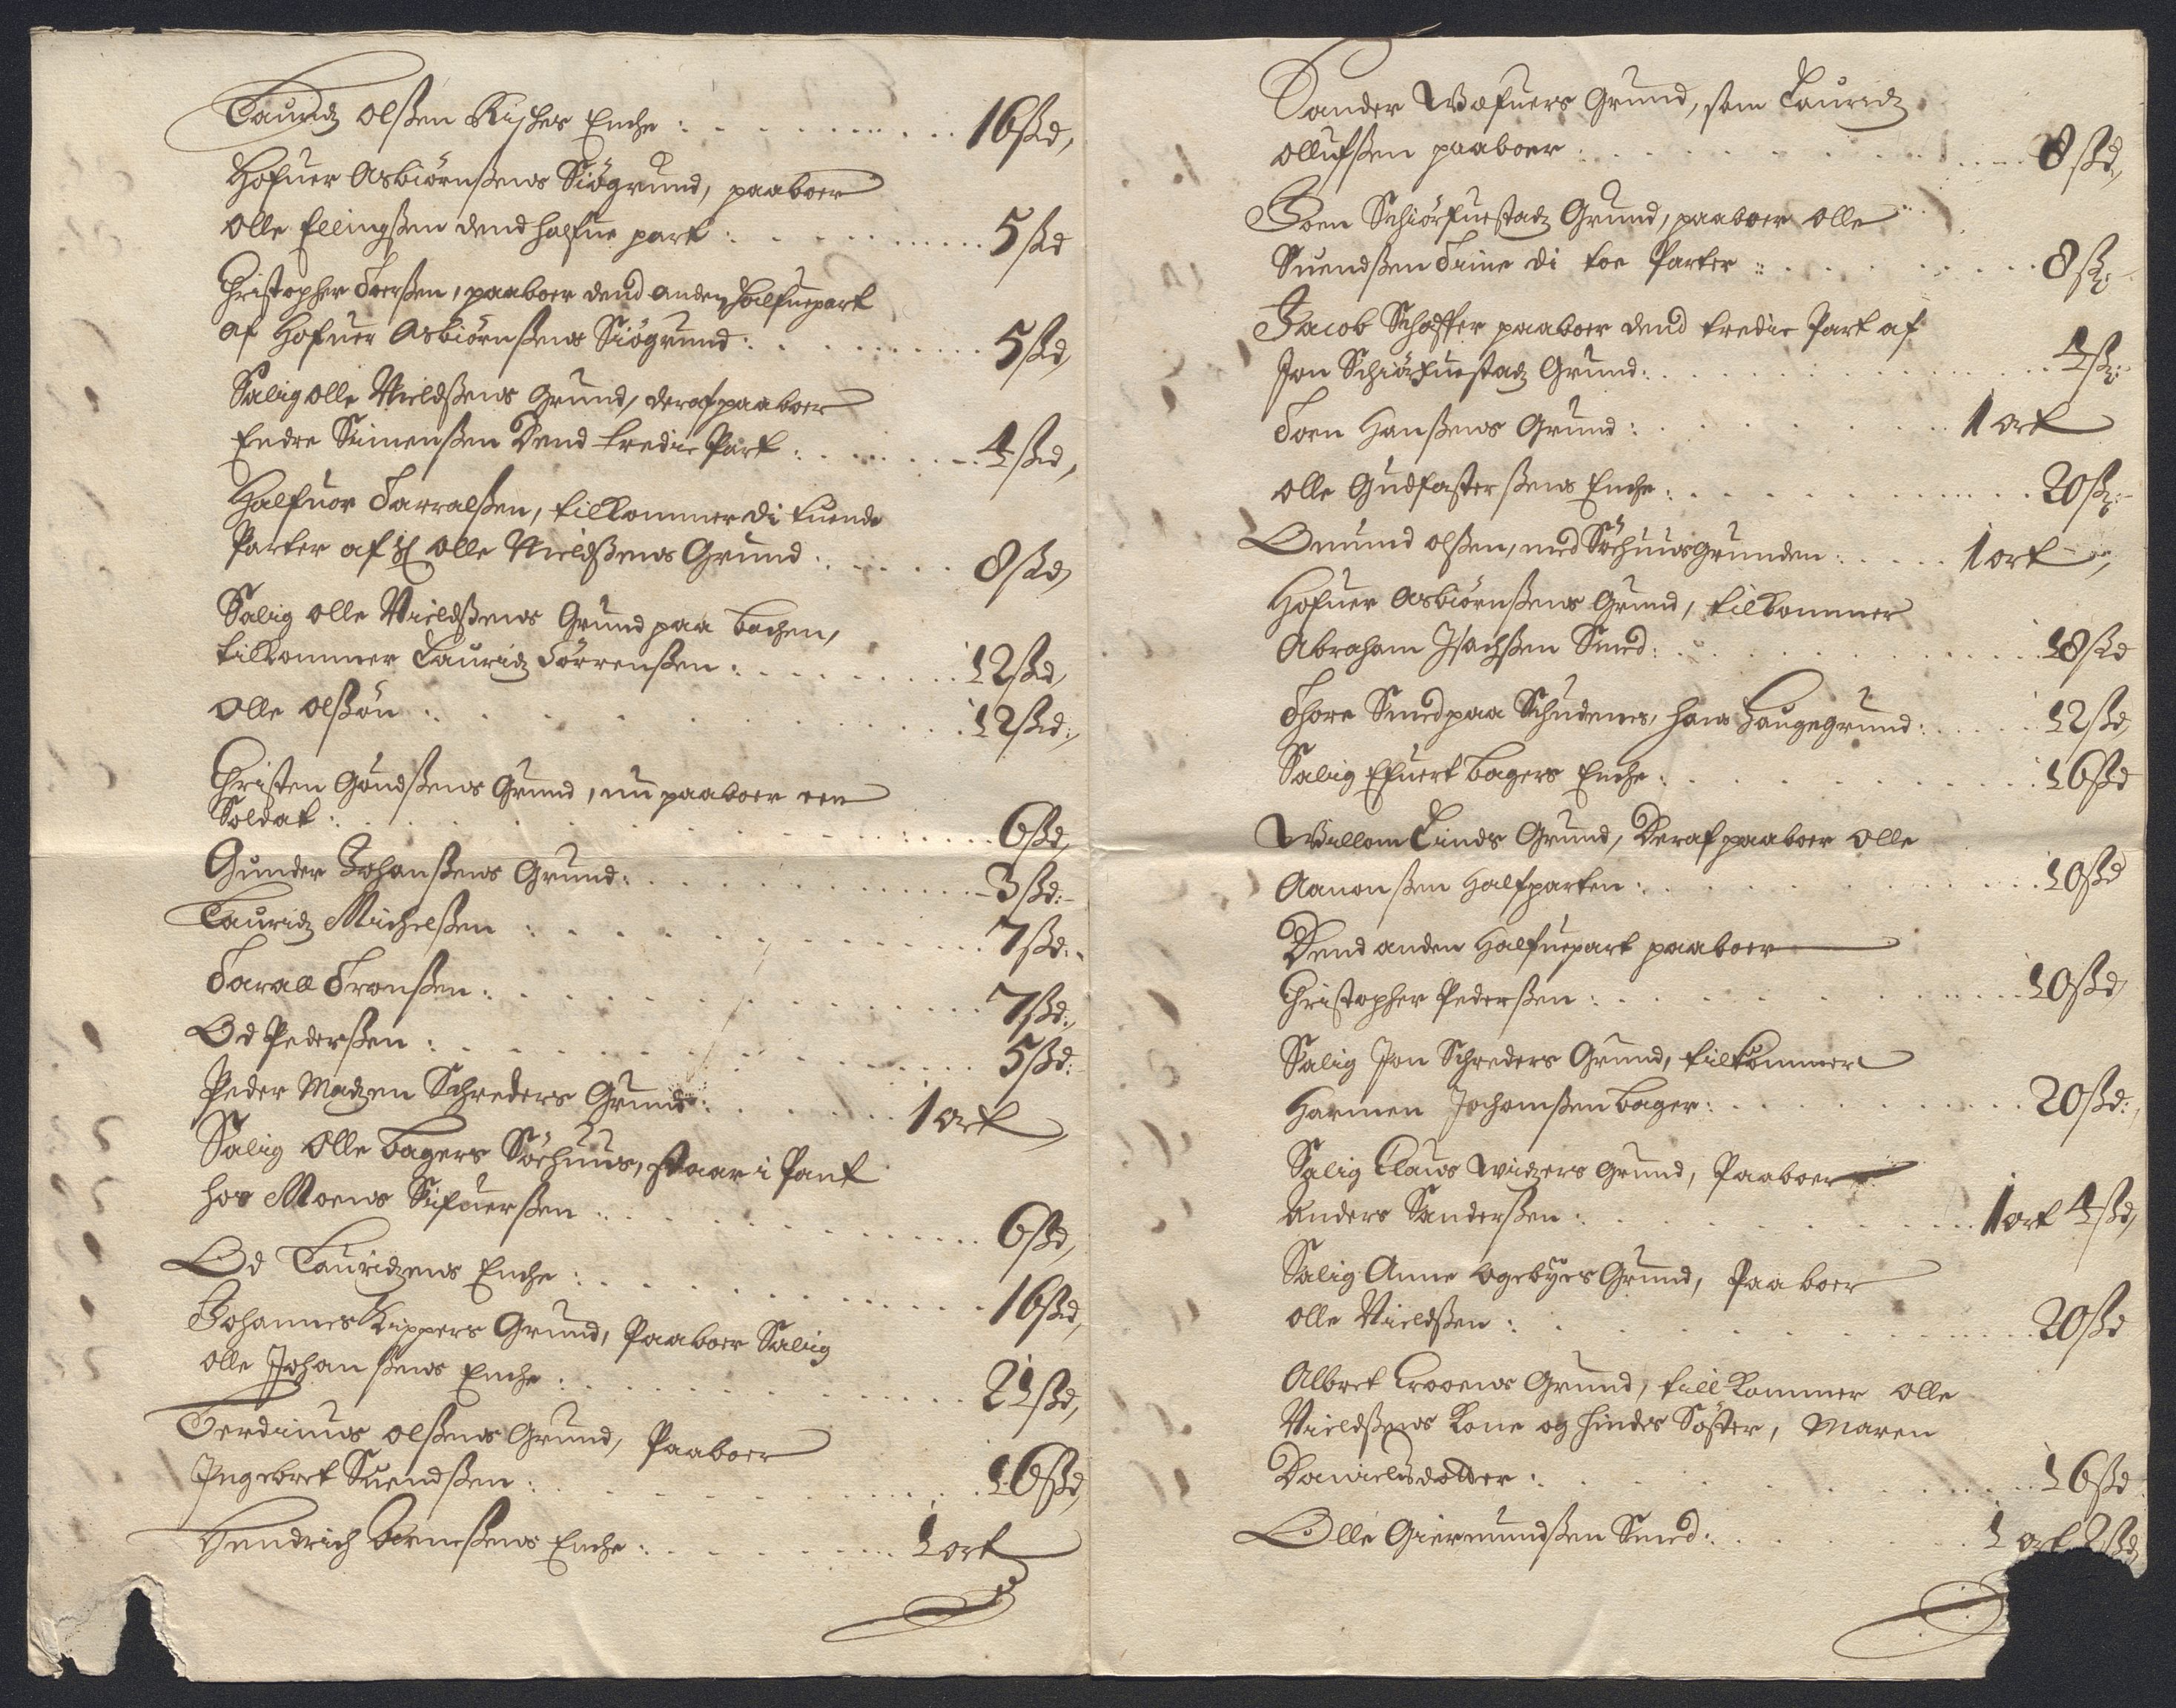 Lauridz Olßen Riches Enche : 16 ßd,
Hofuer Asbiörnßens Siögrund, paaboer
Olle Ellingßen dend halfue part : 5 ßd
Christopher Toerßen, paaboer dend anden halfuepart
af Hofuer Asbiörnßens Siögrund : 5 ßd,
Salig Olle Nieldßens Grund, deraf paaboer
Endre Simenßen Dend tredie Part : 4 ßd,
Halfuor Tarralßen, tilkommer di tuende
Parter af Olle Nieldßens Grund : 8 ßd,
Salig Olle Nieldßens Grund paa Bachen,
tilkommer Lauridz Törrenßen : 12 ßd,
Olle Olßön : 12 ßd:,
Christen Gundßens Grund, nu paaboer een
Soldat : 6 ßd,
Gunder Johanßens Grund : 3 ßd:
Lauridz Michelßen : 7 ßd:
Tarall Tronßen : 7 ßd:,
Od Pederßen : 5 ßd:
Peder Madzen Schreders Grund : 1 ort,
Salig Olle Bagers Söehuus, staar i Pant
hos Moens Sifuerßen : 6 ßd,
Od Lauridzens Enche : 16 ßd,
Johannes Kippers Grund, Paaboer Salig
Olle Johanßens Enche : 21 ßd,
Ferdinus Olßens Grund, Paaboer
Ingebret Suendßen : 16 ßd,
Hendrich Arneßens Enche : 1 ort
Sander Wæfuers Grund, som Lauridz
Ollufßen paaboer : 8 ßd,
Joen Schiörfuestadz Grund, paaboer Olle
Suendßen Trine di toe Parter : 8 ß:
Jacob Schaffer paaboer dend tredie Part af
Jon Schiörfuestadz Grund : 4 ß:
Toen Hanßens Grund : 1 ort
Olle Gudfasterßens Enche : 20 ß:
Omund Olßen, med Söehuusgrunden : 1 ort,
Hofuer Asbiörnßens Grund, tilkommer
Abraham Isachßen Smed : 18 ßd
Thore Smed paa Schudenes, hans Haugegrund : 12 ßd,
Salig Efuert Bagers Enche : 16 ßd
Willom Linds Grund, Deraf paaboer Olle
Aanonßen Halfparten : 10 ßd
Dend anden Halfuepart paaboer
Christopher Pederßen : 10 ßd,
Salig Jon Schreders Grund, tilkommer
Harmen Jochomßen Bager : 20 ßd:,
Salig Claus Widzers Grund, Paaboer
Anders Sanderßen : 1 ort 4 ßd,
Salig Anne Ogebyes Grund, Paaboer
Olle Nieldßen : 20 ßd
Albret Grooens Grund, till kommer Olle
Nieldßens Kone og hindes Söster, Maren
Danielsdotter : 16 ßd
Olle Giermundßen Smed : 1 ort 2 ßd,